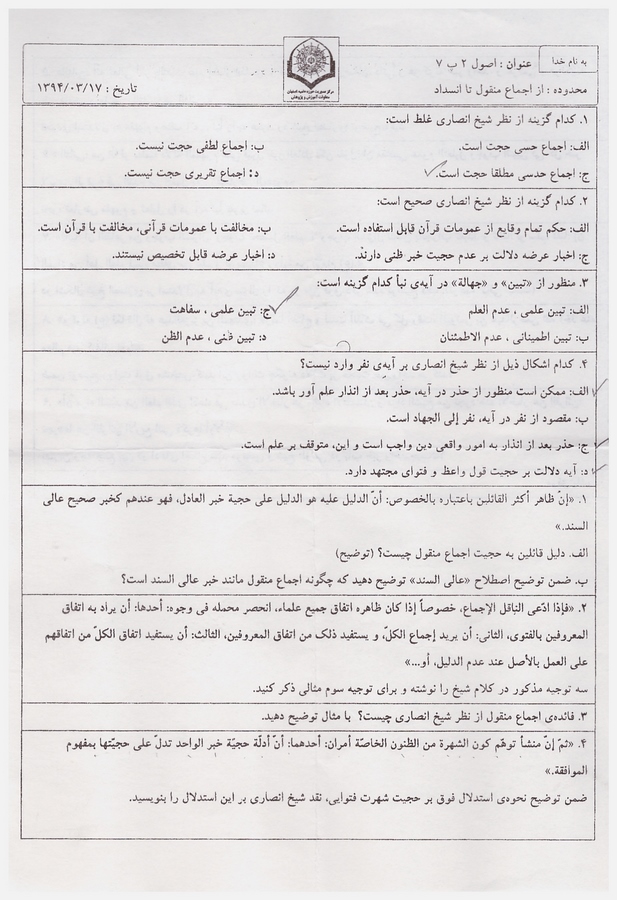 به نام خدا
عنوان : اصول ۲ ب ۷
محدوده : از اجماع منقول تا انسداد
تاریخ : ۱۳۹۴/۰۳/۱۷
۱. کدام گزینه از نظر شیخ انصاری غلط است:
الف: اجماع حسی حجت است.
ب: اجماع لطفی حجت نیست.
ج: اجماع حدسی مطلقا حجت است.
د: اجماع تقریری حجت نیست.
۲. کدام گزینه از نظر شیخ انصاری صحیح است:
الف: حکم تمام وقایع از عمومات قرآن قابل استفاده است.
ب: مخالفت با عمومات قرآنی، مخالفت با قرآن است.
ج: اخبار عرضه دلالت بر عدم حجیت خبر ظنی دارند.
د: اخبار عرضه قابل تخصیص نیستند.
۳. منظور از «تبین» و «جهالة» در آیه‌ی نبأ کدام گزینه است:
الف: تبین علمی ، عدم العلم
ج: تبین علمی ، سفاهت
ب: تبین اطمینانی ، عدم الاطمئنان
د: تبین ظنی ، عدم الظن
۴. کدام اشکال ذیل از نظر شیخ انصاری بر آیه‌ی نفر وارد نیست؟
الف: ممکن است منظور از حذر در آیه، حذر بعد از انذار علم آور باشد.
ب: مقصود از نفر در آیه، نفر إلی الجهاد است.
ج: حذر بعد از انذار به امور واقعی دین واجب است و این، متوقف بر علم است.
د: آیه دلالت بر حجیت قول واعظ و فتوای مجتهد دارد.
۱. «إنّ ظاهر أکثر القائلین باعتباره بالخصوص: أنّ الدلیل علیه هو الدلیل علی حجیة خبر العادل، فهو عندهم کخبر صحیح عالی
السند.»
الف. دلیل قائلین به حجیت اجماع منقول چیست؟ (توضیح)
ب. ضمن توضیح اصطلاح «عالی السند» توضیح دهید که چگونه اجماع منقول مانند خبر عالی السند است؟
۲. «فإذا ادّعی الناقل الإجماع، خصوصاً إذا کان ظاهره اتفاق جمیع علماء، انحصر محمله فی وجوه: أحدها: أن یراد به اتفاق
المعروفین بالفتوی، الثانی: أن یرید إجماع الکلّ، و یستفید ذلک من اتفاق المعروفین، الثالث: أن یستفید اتفاق الکلّ من اتفاقهم
علی العمل بالأصل عند عدم الدلیل، أو...»
سه توجیه مذکور در کلام شیخ را نوشته و برای توجیه سوم مثالی ذکر کنید.
۳. فائده‌ی اجماع منقول از نظر شیخ انصاری چیست؟ با مثال توضیح دهید.
۴. «ثمّ إنّ منشأ توهّم کون الشهرة من الظنون الخاصّة أمران: أحدهما: أنّ أدلّة حجیّة خبر الواحد تدلّ علی حجیّتها بمفهوم
الموافقة.»
ضمن توضیح نحوه‌ی استدلال فوق بر حجیت شهرت فتوایی، نقد شیخ انصاری بر این استدلال را بنویسید.